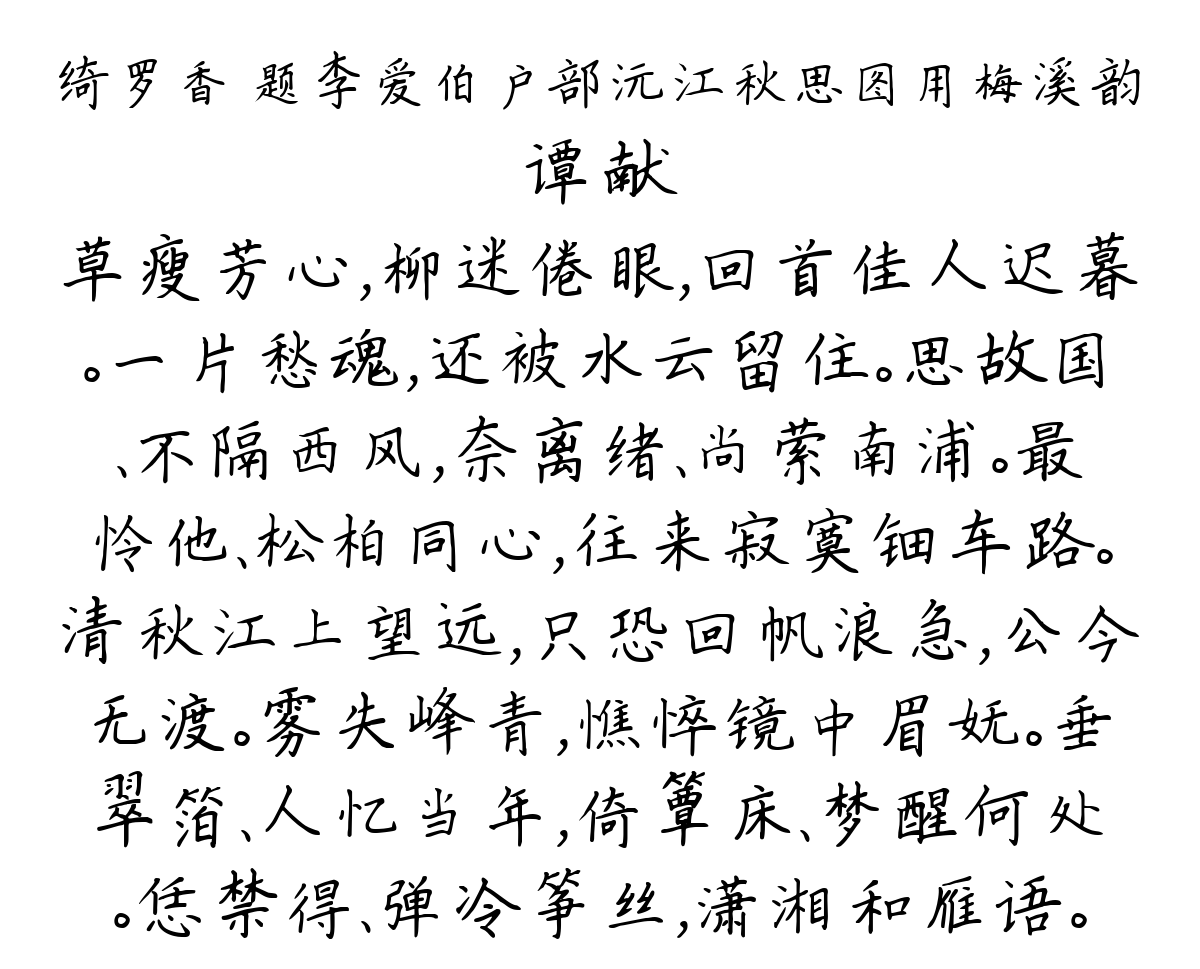 绮罗香 题李爱伯户部沅江秋思图用梅溪韵
谭献
草瘦芳心,柳迷倦眼,回首佳人迟暮
。一片愁魂,还被水云留住。思故国
、不隔西风,奈离绪、尚萦南浦。最
怜他、松柏同心,往来寂寞钿车路。
清秋江上望远,只恐回帆浪急,公今
无渡。雾失峰青,憔悴镜中眉妩。垂
翠箔、人忆当年,倚簟床、梦醒何处
。恁禁得、弹冷筝丝,潇湘和雁语。